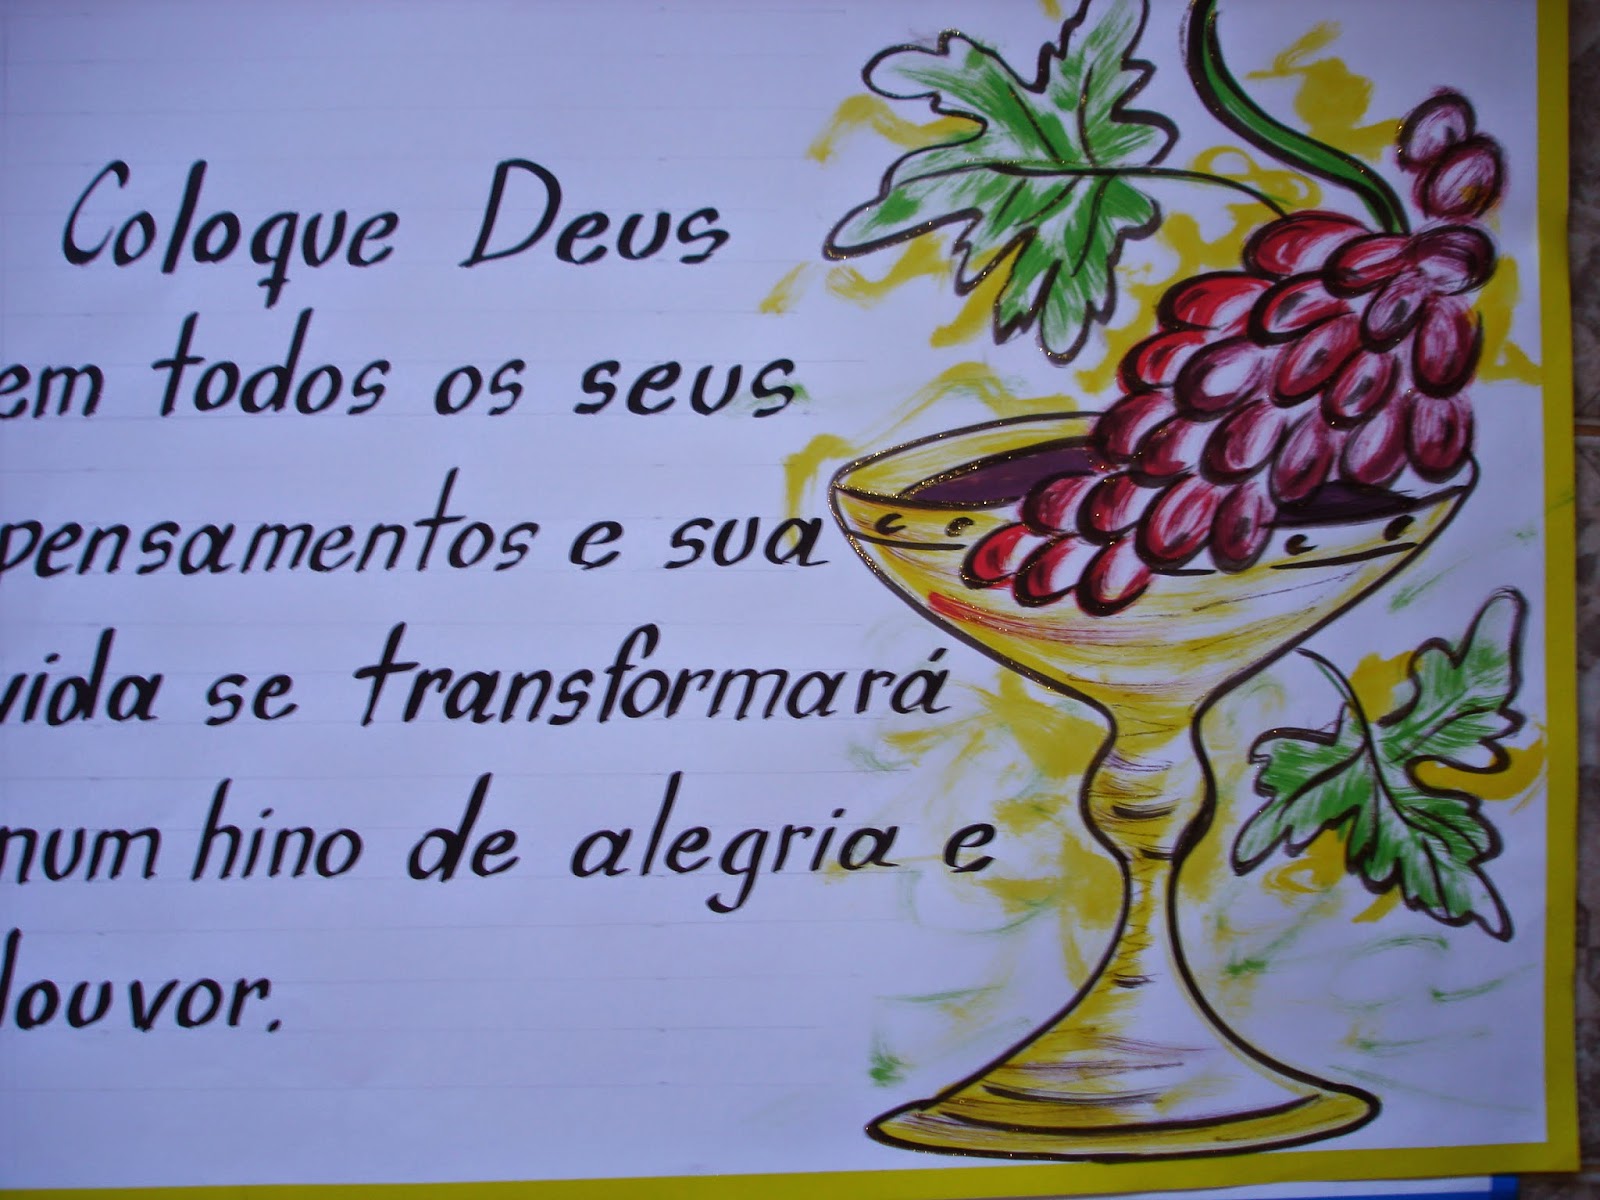 Coloque Deus
em todos os seus
pensamentos e sua
vida se transformará
num hino de alegria e
louvor.